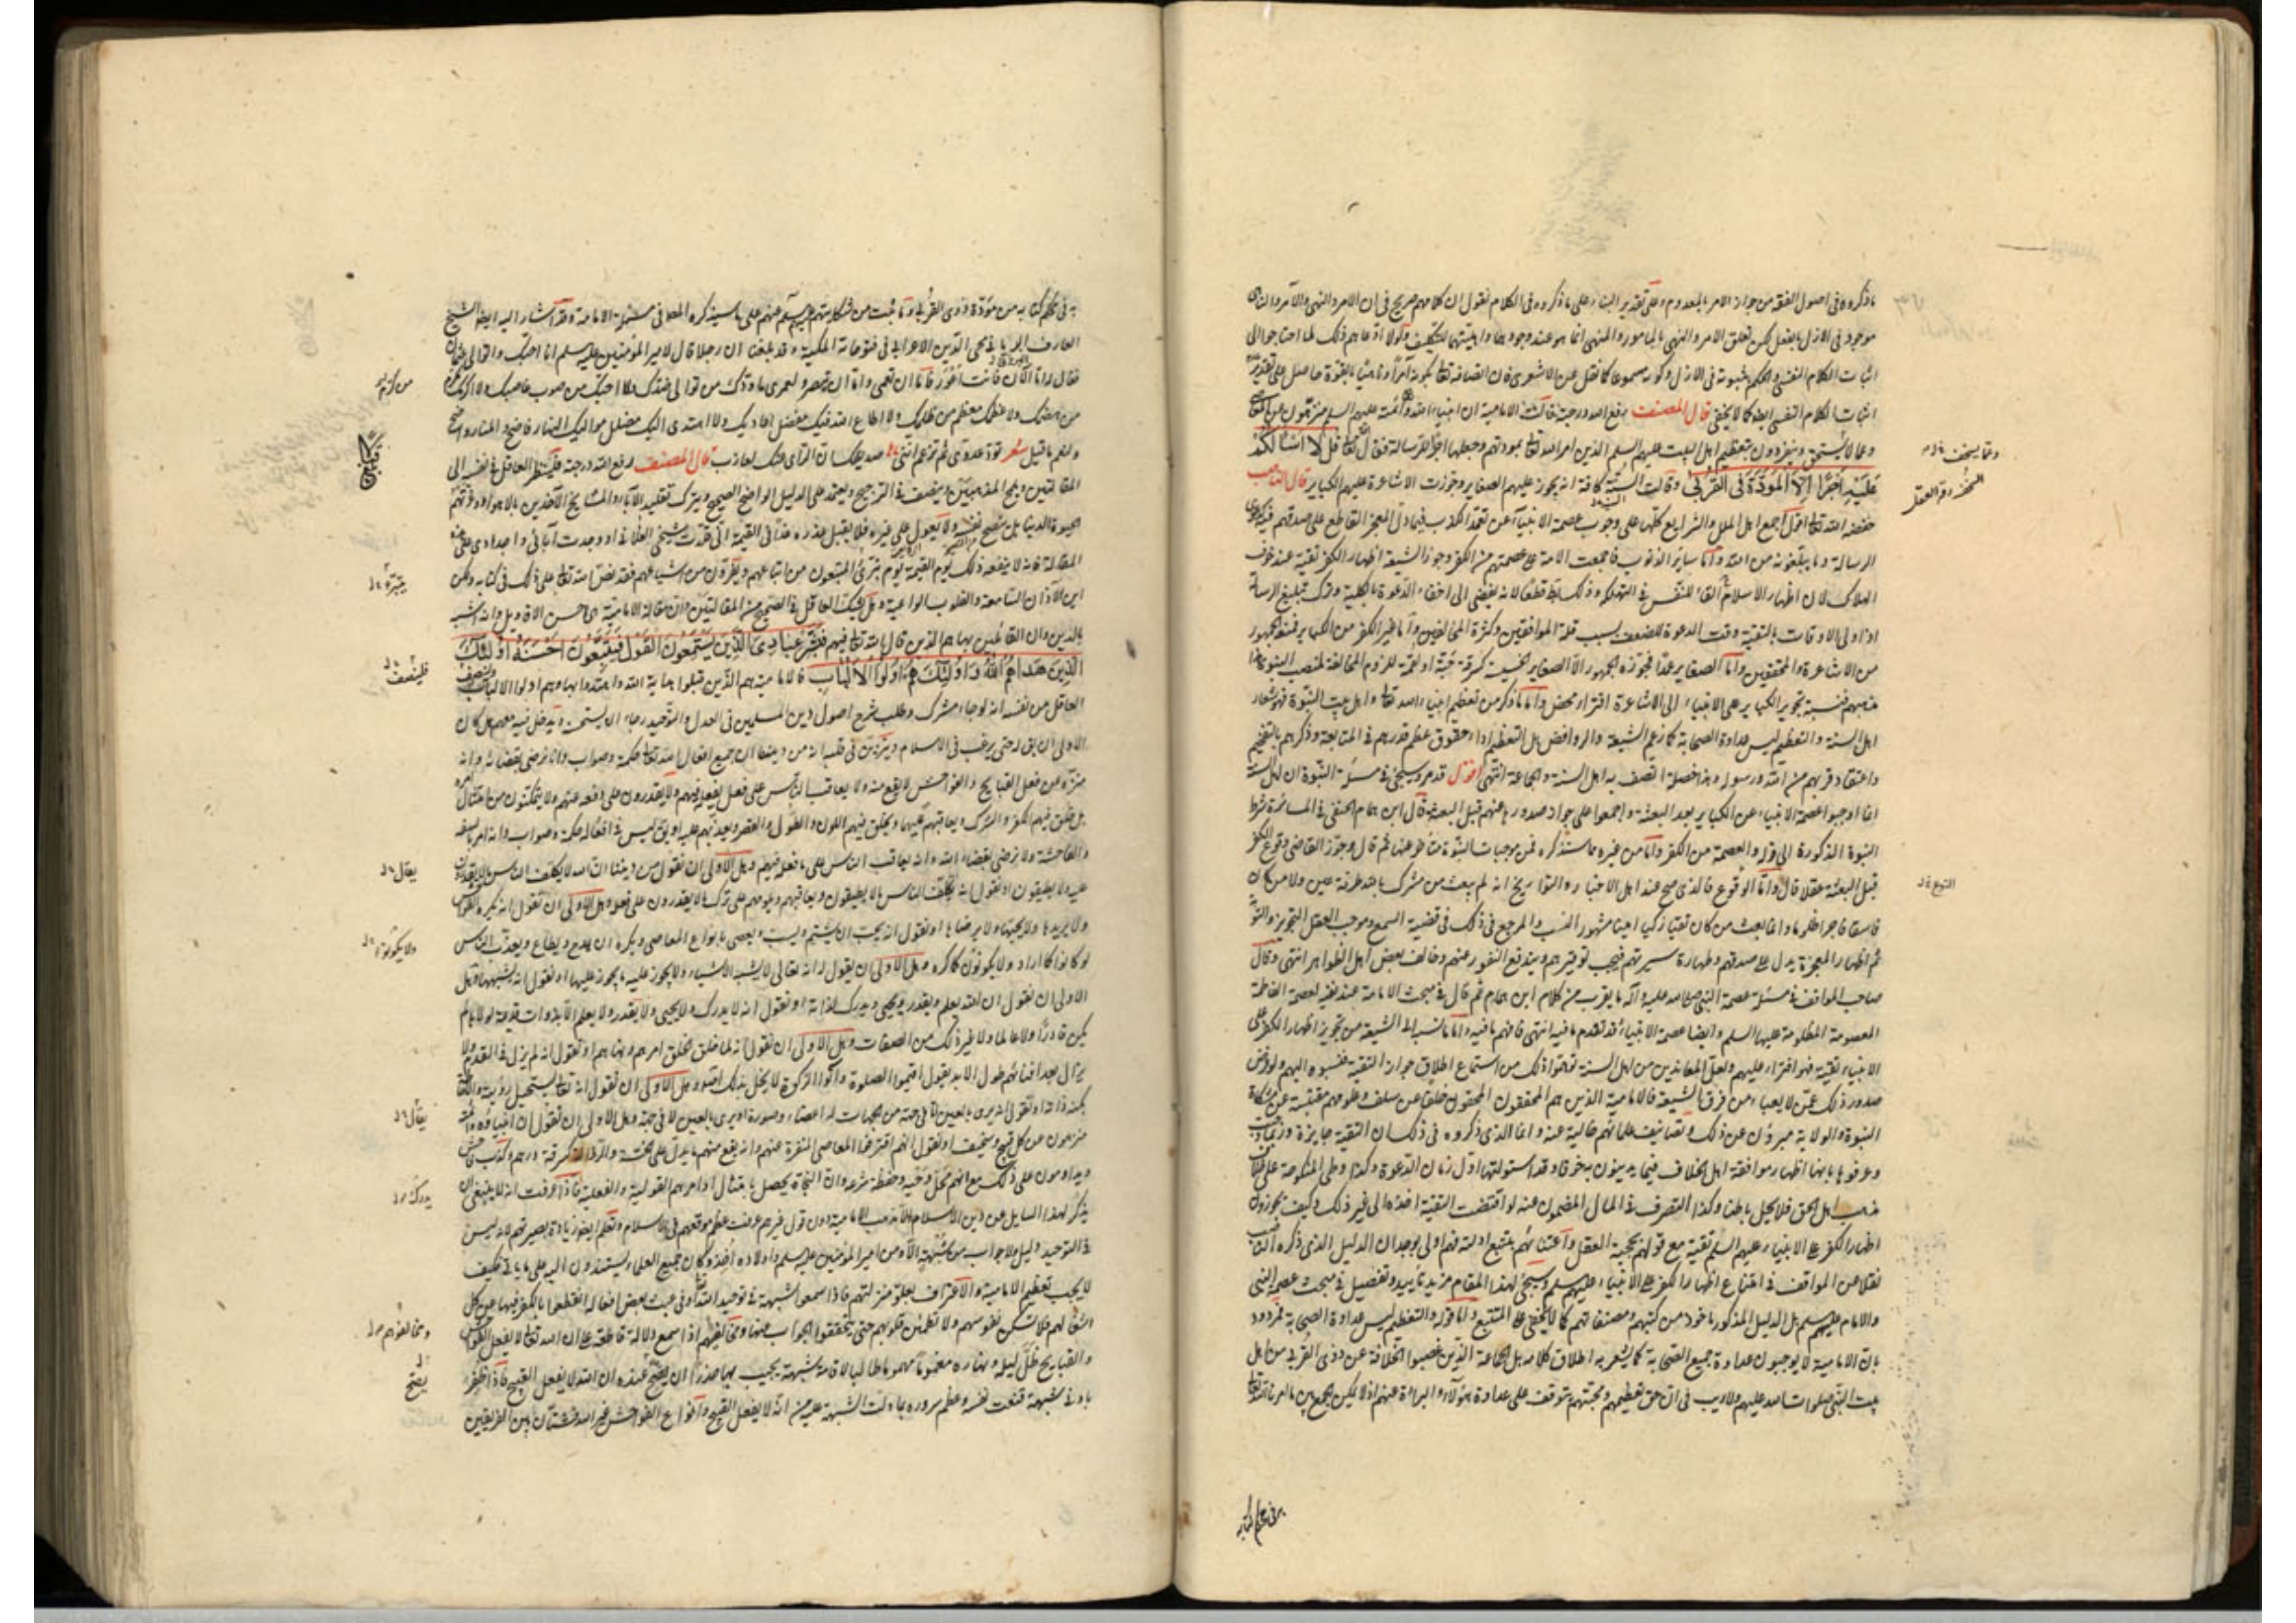 ما ذكروه في اصول الفقه من جواز الامر بالمعدوم وعلى تقدير البناء على ما ذكروه في الكلام نقول ان كلامهم صريح في ان الامر والنهي والآمر والناهي
موجود في الازل بالفعل لكن تعلق الامر والنهي بالمأمور والمنهي انما هو عند وجودهما واهليتهما للتكليف ولولا ادعاهم ذلك لما احتاجوا الى
اثبات الكلام النفسي والحكم بثبوته في الازل وكونه مسموعا كما نقل عن الاشعري فان اتصافه تعالى بكونه آمرا وناهيا بالقوة حاصل على تقدير
اثبات الكلام النفسي ايضا كما لا يخفى قال المصنف رفع الله درجته قالت الامامية ان انبياء الله وائمته عليهم السلم منزهون عن المعاصي
وعما لا يستحق وينفرون بتعظيم اهل البيت عليهم السلم الذين امر الله تعالى بمودتهم وجعلها اجر الرسالة فقال الله تعالى قل لا اسألكم
عليه اجرا الا المودة في القربى وقالت السنة كافة انه يجوز عليهم الصغاير وجوزت الاشاعرة عليهم الكباير قال الناصب
خفضه الله تعالى اقول اجمع اهل الملل والشرايع كلها على وجوب عصمة الانبياء عن تعمد الكذب فيما دل المعجز القاطع على صدقهم فيه كدعوى
الرسالة وما يبلغونه من الله واما ساير الذنوب فاجمعت الامة على عصمتهم من الكفر وجوز الشيعة اظهار الكفر تقية عند خوف
الهلاك لان اظهار الاسلام القاء للنفس في التهلكة وذلك باطل قطعا لانه يفضي الى اخفاء الدعوة بالكلية وترك تبليغ الرسالة
اذ اولى الاوقات بالتقية وقت الدعوة للضعف بسبب قلة الموافقين وكثرة المخالفين واما غير الكفر من الكباير فمنعه الجمهور
من الاشاعرة والمحققين واما الصغاير عمدا فجوزه الجمهور الا الصغاير الخسيسة كسرقة حبة او لقمة للزوم المخالفة لمنصب النبوة هذا
مذهبهم فنسبة تجويز الكباير على الانبياء الى الاشاعرة افتراء محض واما ما ذكر من تعظيم انبياء الله تعالى واهل بيت النبوة فهو شعار
اهل السنة والتعظيم ليس عداوة الصحابة كما زعم الشيعة والروافض بل التعظيم اداء حقوق عظم قدرهم في المتابعة وذكرهم بالتفخيم
واعتقاد قربهم من الله ورسوله وهذا خصلة اتصف به اهل السنة والجماعة انتهى اقول قد مر وسيجيء في مسئلة النبوة ان اهل السنة
انما اوجبوا عصمة الانبياء عن الكباير بعد البعثة واجمعوا على جواز صدورها عنهم قبل البعثة قال ابن همام الحنفي في المسايرة شرط
النبوة الذكورة الى قوله والعصمة من الكفر واما من غيره مما سنذكره فمن موجبات النبوة متأخر عنها ثم قال وجوز القاضي وقوع الكفر
قبل البعثة عقلا قال واما الوقوع فالذي صح عند اهل الاخبار والتواريخ انه لم يبعث من مشرك بالله طرفة عين ولا من كان
فاسقا فاجرا ظلوما وانما بعث من كان تقيا زكيا امينا مشهور النسب والمرجع في ذلك في قضية السمع وموجب العقل التجويز والتوقف
ثم اظهار المعجزة يدل على صدقهم وطهارة سيرتهم فيجب توقيرهم ويندفع النفور عنهم وخالف بعض اهل الظواهر انتهى وقال
صاحب المواقف في مسئلة عصمة النبي صلى الله عليه وآله ما يقرب من كلام ابن همام ثم قال في مبحث الامامة عند نفيه لعصمة الفاطمة
المعصومة المظلومة عليها السلم وايضا عصمة الانبياء قد تقدم ما فيه انتهى فافهم ما فيه واما ما نسبه الى الشيعة من تجويز اظهار الكفر على
الانبياء تقية فهو افتراء عليهم ولعل المعاندين من اهل السنة توهموا ذلك من استماع اطلاق جواز التقية فنسبوه اليهم ولو فرض
صدور ذلك عمن لا يعباء به من فرق الشيعة فالامامية الذين هم المحققون المحقون خلفا عن سلف وعلومهم مقتبسة عن مشكاة
النبوة والولاية مبرؤن عن ذلك وتصانيف علمائهم خالية عنه وانما الذي ذكروه في ذلك ان التقية جايزة وربما وجبت
وعرفوها بانها اظهار موافقة اهل الخلاف فيما يدينون به خوفا
مذهب اهل الحق فلا يحل باطنا وكذا التصرف في المال المضمون عنه لو اقتضت التقية اخذه الى غير ذلك وكيف يجوزون
اظهار الكفر على الانبياء عليهم السلم تقية مع قولهم بحجية العقل واعتنائهم بتتبع ادلته فهم اولى بوجدان الدليل الذي ذكره الناصب
نقلا عن المواقف في امتناع اظهار الكفر على الانبياء عليهم السلم وسيجيء لهذا المقام مزيد تأييد وتفصيل في مبحث عصمة النبي
والامام عليهم السلم بل الدليل المذكور مأخوذ من كتبهم ومصنفاتهم كما لا يخفى على المتتبع واما قوله والتعظيم ليس عداوة الصحابة فمردود
بان الامامية لا يوجبون عداوة جميع الصحابة كما يشعر به اطلاق كلامه بل الجماعة الذين غصبوا الخلافة عن ذوي القربى من اهل
بيت النبي صلوات الله عليهم ولا ريب في ان حق تعظيمهم ومحبتهم متوقف على عداوة هؤلاء والبراءة عنهم اذ لا يمكن الجمع بين ما امرنا الله تعالى
به في محكم كتابه
به في محكم كتابه من مودة ذوي القربى وما ثبت من شكايتهم عليهم السلم عنهم على ما سيذكره المصنف في مسئلة الامامة وقد اشار اليه ايضا الشيخ
العارف محي الدين الاعرابي في فتوحاته المكية وقد بلغنا ان رجلا قال لامير المؤمنين عليه السلم انا احبك واتوالى عثمان
فقال له اما الآن فانت اعور فاما ان تعمى واما ان تبصر ولعمري ما ودك من توالى ضدك ولا احبك من صوب غاصبك ولا اكرمك
ولنعم ما قيل شعر تود عدوي ثم تزعم انني صديقك ان الرأي عنك لعازب قال المصنف رفع الله درجته فلينظر العاقل في نفسه الى
المقالتين ويلمح المذهبين وينصف في الترجيح ويعتمد على الدليل الواضح الصحيح ويترك تقليد الآباء والمشايخ الآخذين بالاهواء وغرتهم
الحيوة الدنيا بل ينصح نفسه ولا يعول على غيره فلا يقبل عذره غدا في القيمة اني قلدت شيخي الفلاني او وجدت آبائي واجدادي على هذه
المقالة فانه لا ينفعه ذلك يوم القيمة يوم يتبرئ المتبعون من اتباعهم ويفرون من اشياعهم فقد نص الله تعالى على ذلك في كتابه ولكن
اين الآذان السامعة والقلوب الواعية وهل يشك العاقل في الصحيح من المقالتين وان مقالة الامامية هي احسن الاقاويل وانه اشبه
بالدين وان القائلين بها هم الذين قال الله تعالى فيهم فبشر عبادي الذين يستمعون القول فيتبعون احسنه اولئك
الذين هداهم الله واولئك هم اولوا الالباب فالامامية هم الذين قبلوا هداية الله واهتدوا بها وهم اولوا الالباب ولينصف
العاقل من نفسه انه لو جاء مشرك وطلب شرح اصول دين المسلمين في العدل والتوحيد رجاء ان يستحسنه ويدخل فيه معهم هل كان
الاولى ان يقال له حتى يرغب في الاسلام ويتزين في قلبه انه من ديننا ان جميع افعال الله تعالى حكمة وصواب وانا نرضى بقضائه وانه
منزه من فعل القبايح والفواحش لا يقع منه ولا يعاقب الناس على فعل يفعله فيهم ولا يقدرون على دفعه عنهم ولا يتمكنون من امتثال امره
بل خلق فيهم الكفر والشرك ويعاقبهم عليهما ويخلق فيهم اللون والطول والقصر ويعذبهم عليها او يقال ليس في افعاله حكمة وصواب وانه امر بالسفه
والفاحشة ولا نرضى بقضاء الله وانه يعاقب الناس على ما فعله فيهم وهل الاولى ان نقول من ديننا ان الله لا يكلف الناس ما لا يقدرون
عليه ولا يطيقون او نقول انه يكلف الناس ما لا يطيقون ويعاقبهم ويلومهم على ترك ما لا يقدرون على فعله وهل الاولى ان نقول انه يكره الفواحش
ولا يريدها ولا يحبها ولا يرضاها او نقول انه يحب ان يشتم ويسب ويعصى بانواع المعاصي ويكره ان يمدح ويطاع ويعذب الناس
لو كانوا كما اراد ولا يكونون كما كره وهل الاولى ان يقول انه تعالى لا يشبه الاشياء ولا يجوز عليه ما يجوز عليها او نقول انه يشبهها وهل
الاولى ان نقول ان الله يعلم ويقدر ويحيي ويدرك لذاته او نقول انه لا يدرك ولا يحيي ولا يقدر ولا يعلم الا بذوات قديمة لولاها لم
يكن قادرا ولا عالما ولا غير ذلك من الصفات وهل الاولى ان نقول انه لما خلق الخلق امرهم ونهاهم او نقول انه لم يزل في القدم ولا
يزال بعد افنائهم طول الابد يقول اقيموا الصلوة وآتوا الزكوة لا يخل بذلك اصلا وهل الاولى ان نقول انه تعالى يستحيل رؤيته والاحاطة
بكنه ذاته او نقول انه يرى بالعين اما في جهة من الجهات له اعضاء وصورة او يرى بالعين لا في جهة وهل الاولى ان نقول ان انبياؤه وائمته
منزهون عن كل قبيح وسخيف او نقول انهم اقترفوا المعاصي المنفرة عنهم وانه يقع منهم ما يدل على الخسة والرذالة كسرقة درهم وكذب فاحش
ويداومون على ذلك مع انهم محل وحيه وحفظة شرعه وان النجاة يحصل بامتثال اوامرهم القولية والفعلية فاذا عرفت انه لا ينبغي ان
يذكر لهذا السايل عن دين الاسلام الا مذهب الامامية دون قول غيرهم عرفت عظم موقعهم في الاسلام وتعلم ايضا زيادة بصيرتهم لانه ليس
في التوحيد دليل ولا جواب عن شبهة الا ومن امير المؤمنين عليه السلم واولاده اخذ وكان جميع العلماء يستندون اليه على ما يأتي فكيف
لا يجب تعظيم الامامية والاعتراف بعلو منزلتهم فاذا سمعوا شبهة في توحيد الله او في عبث بعض افعاله انقطعوا بالفكر فيها عن كل
اشغالهم فلا تسكن نفوسهم ولا تطمئن قلوبهم حتى يتحققوا الجواب عنها ومخالفهم اذا سمع دلالة قاطعة على ان الله تعالى لا يفعل الفواحش
والقبايح ظل ليله ونهاره مغموما مهموما طالبا لاقامة شبهة يجيب بها حذرا ان يصح عنده ان الله لا يفعل القبيح فاذا ظفر
بادنى شبهة قنعت نفسه وعظم سروره بما دلت الشبهة عليه من انه لا يفعل القبيح وانواع الفواحش غير الله فشتان بين الفريقين